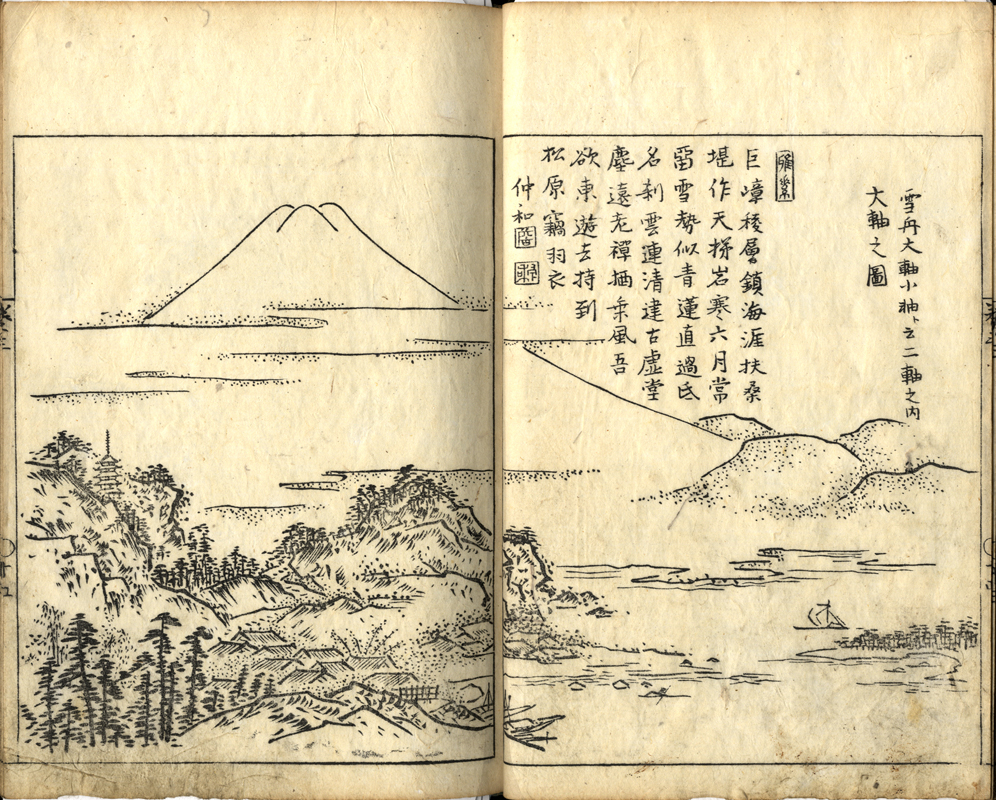 雪舟大軸小軸ト云二軸之内
大軸之圖
巨嶂稜層鎖海涯扶桑
堪作天梯岩寒六月常
留雪勢似青蓮直過氐
名刹雲連清建古虚堂
塵遠老禪栖乗風吾
欲東遊去持到
松原竊羽衣
仲和